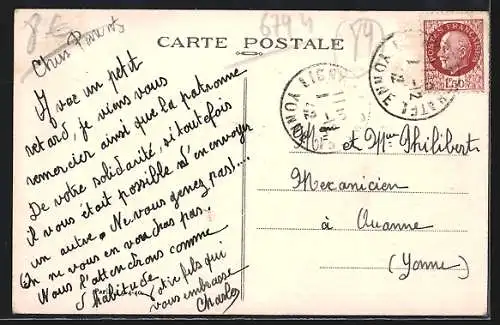 8 €
6794
84
CARTE POSTALE
POSTES FRANÇAISES
1F50
YONNE
Chers Parents
Avec un petit
retard, je viens vous
remercier ainsi que la patronne
De votre solidarité, si toutefois
il vous était possible d'en envoyer
un autre. Ne vous genez pas!...
On ne vous en voudras pas.
Nous l'attendrons comme
d'habitude
Votre fils qui
vous embrasse
Charles
M et Mme Philibert
Mecanicien
à Ouanne
(Yonne)